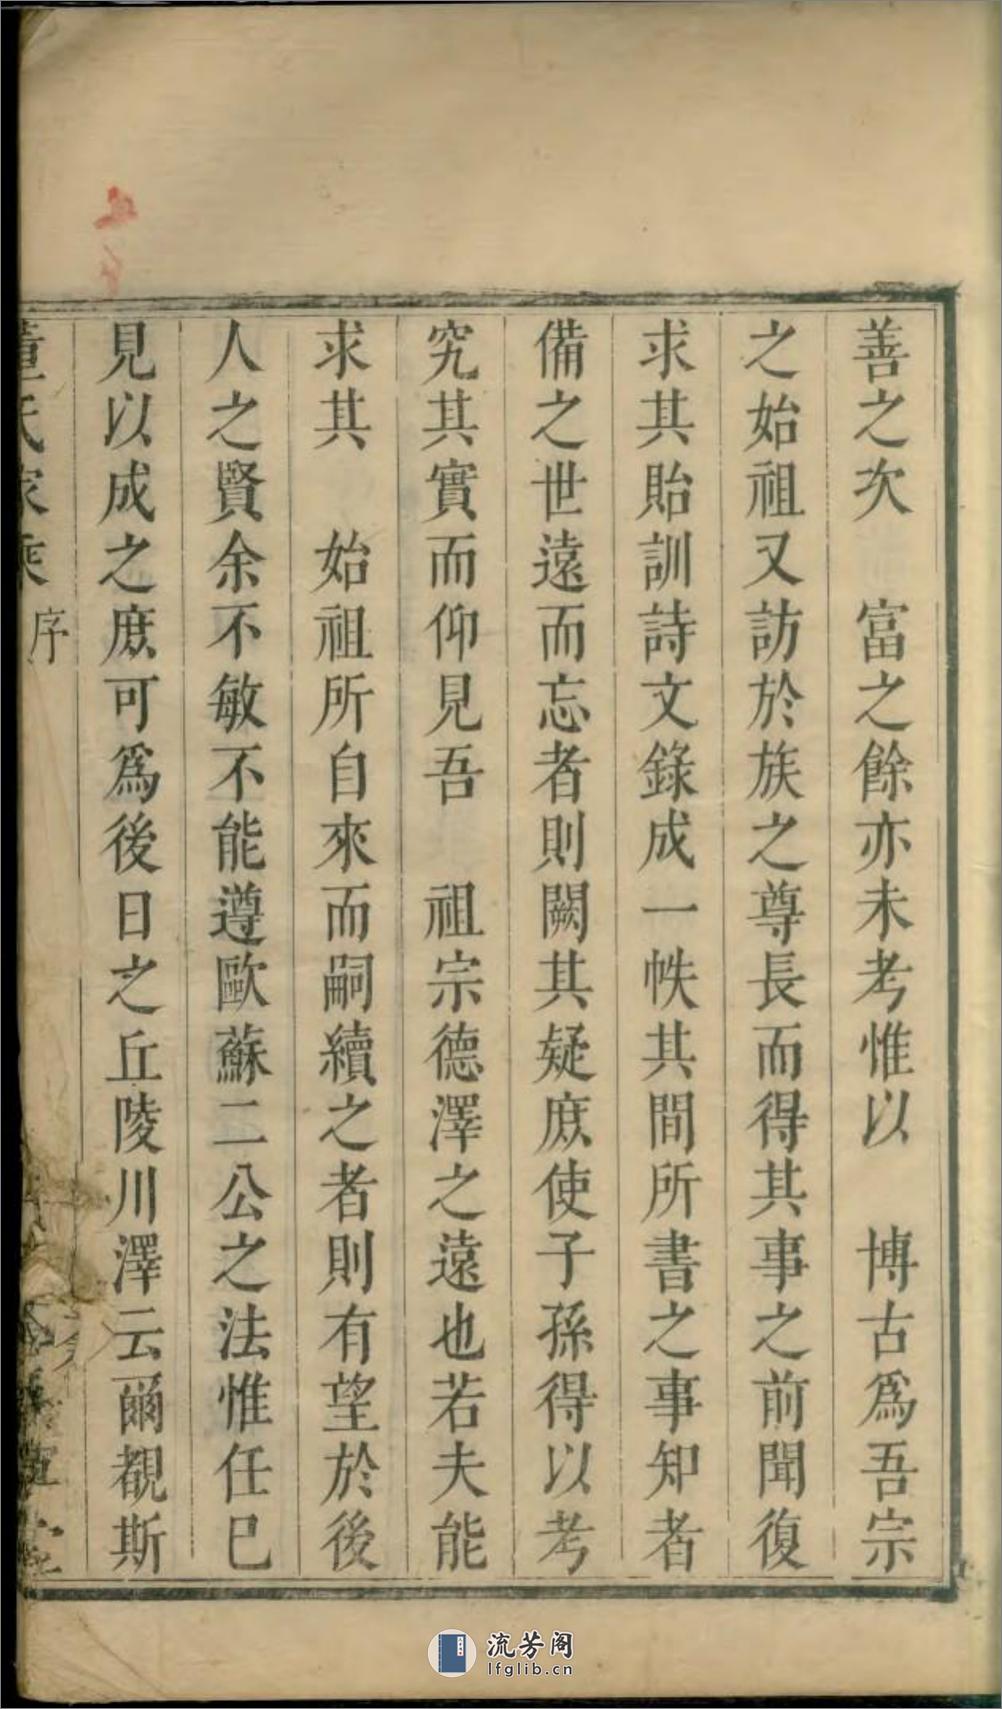 善之次　富之餘亦未考惟以　博古爲吾宗
之始祖又訪於族之尊長而得其事之前聞復
求其貽訓詩文錄成一帙其間所書之事知者
備之世遠而忘者則闕其疑庶使子孫得以考
究其實而仰見吾　祖宗德澤之遠也若夫能
求其　始祖所自來而嗣續之者則有望於後
人之賢余不敏不能遵歐蘇二公之法惟任已
見以成之庶可爲後日之丘陵川澤云爾覩斯
董氏家乘
序
流芳阁
lfglib.cn